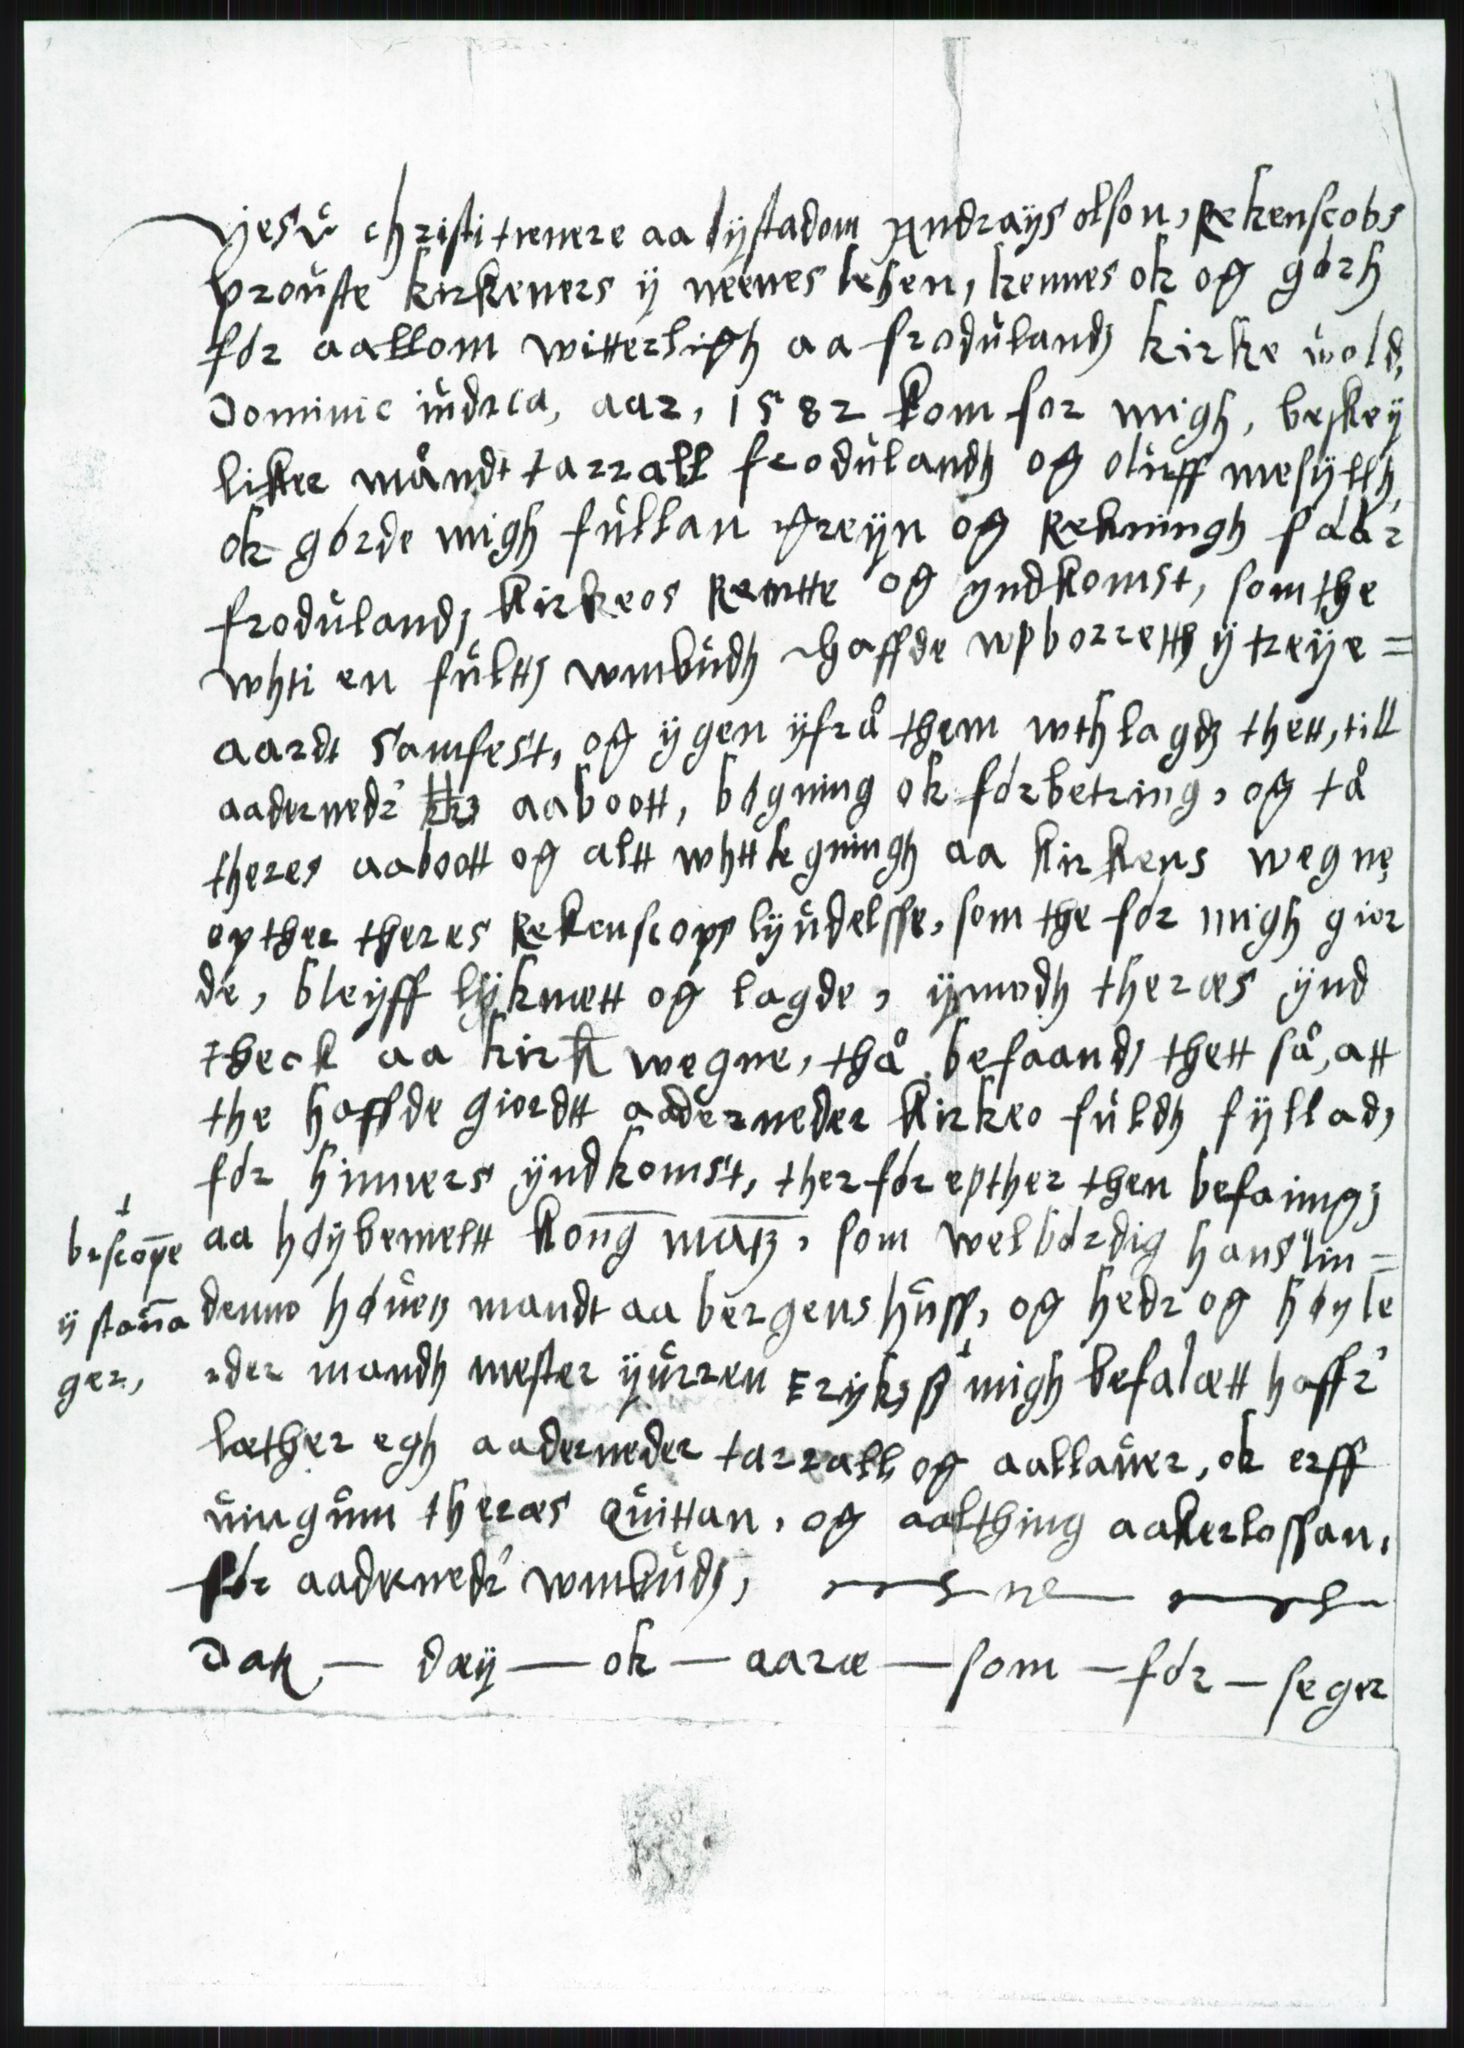 yesŭ christi tienere aa lystadom Andrays olson, Rekenscobs
prouste kirkeners ÿ neenes lehen, kennes ok og görh
för aallom witterligh aa froduland kirke wold,
Dominic iudica, aar, 1582 kom for migh, beskey
liker månd tarrall frodulandh og oluff mesyllh,
ok görde migh fullan greyn og Rekningh föör
froduland kirkeos Rentte og yndkomst, som the
whti en fultt wmbudh haffde wpborretth ÿ treye =
aardt samfest, og ygen yfrå them wthlagd thett, till
aadernedr aaboott, bögning ok förbetring, og tå
theres aaboott og altt whttlegningh aa kirkens wegne
epther theres Rekenscops lyudelsse, som the för migh giör
de, bleyff lyknett og lagde, ymodh theræs ynd
theck aa kirk wegne, thå befaand thett så, att
the haffde giördtt aaderneder kirkeo fuldh fyllad
för hinners yndkomst, therför epther then befaining
aa höybemeltt kong matz, som welbördig hans lin =
denno höuetz mandt aa bergens huss, og hedr og höyle
rder mandh mester yurren Erykss migh befalætt haffr
bescope
ÿ staua
ger,
læther egh aaderneder tarrall og aallauer, ok erff
uingum theræs Quittan, og aalthing aakerlossan,
för aadernedr wmbudh,
Dak — dæy — ok — aaræ — som — för — seger